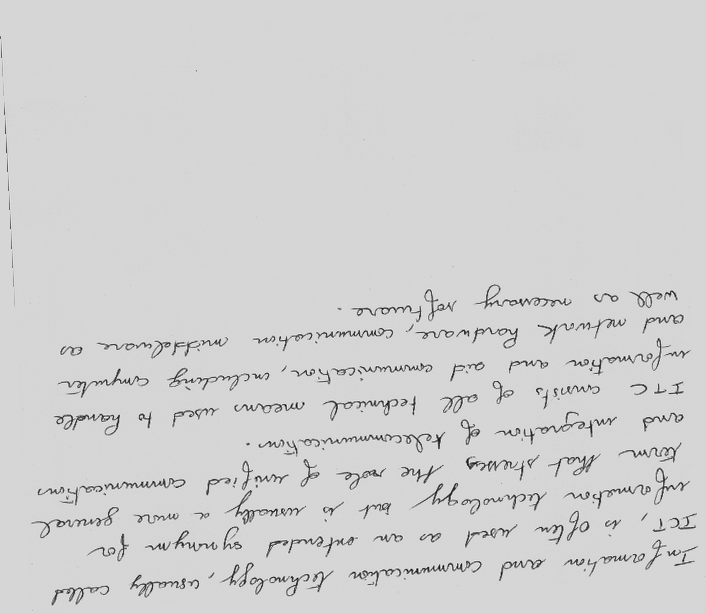 Information and communication technology, usually called
ICT, is often used as an extended synonym for
information technology but is usually a more general
term that stresses the role of unified communications
and integration of telecommunication.
ITC consists of all technical means used to handle
information and aid communication, including computer
and network hardware, communication middelware as
well as necessary software.